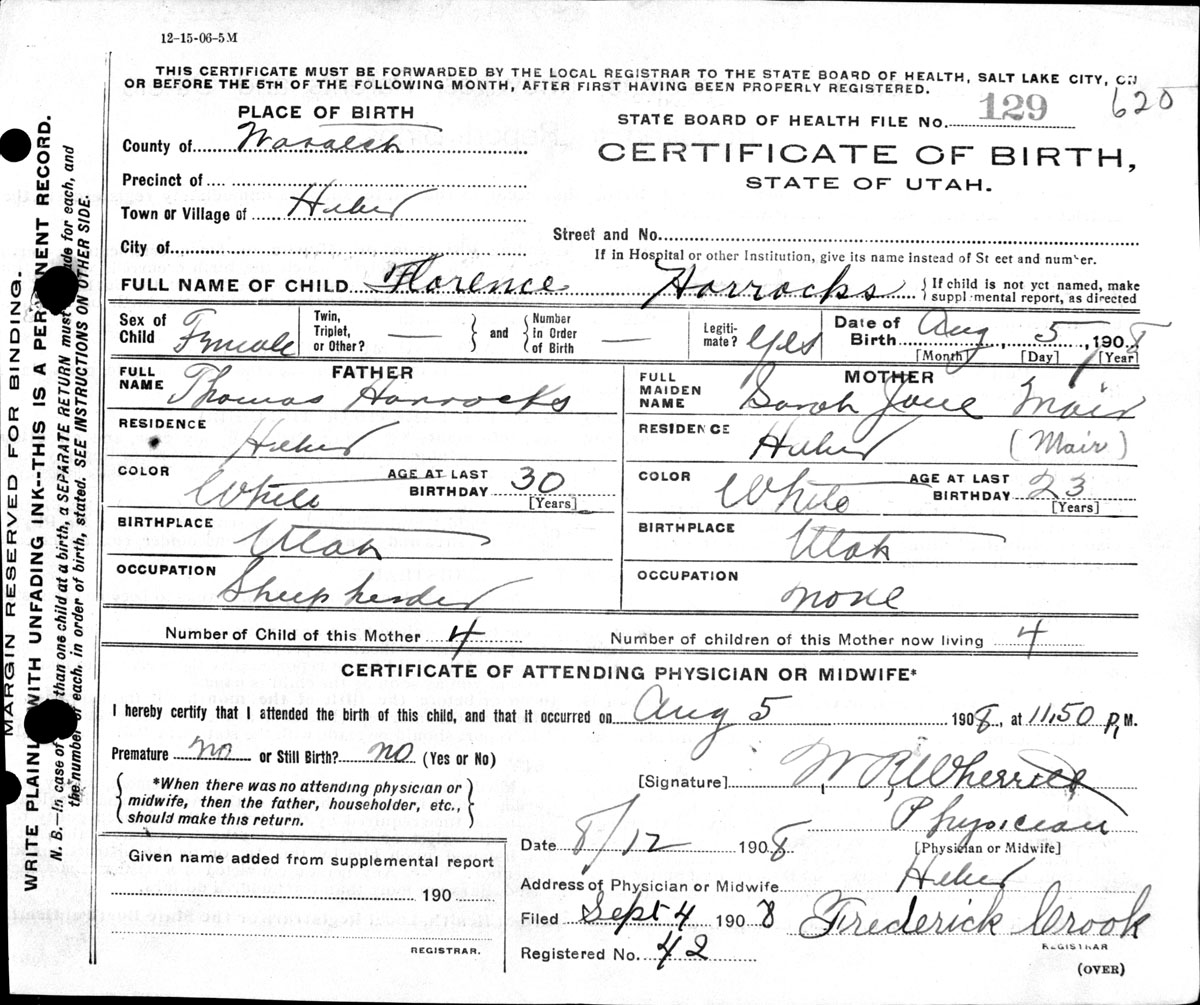 12-15-06-5M
THIS CERTIFICATE MUST BE FORWARDED BY THE LOCAL REGISTRAR TO THE STATE BOARD OF HEALTH, SALT LAKE CITY, ON
OR BEFORE THE 5TH OF THE FOLLOWING MONTH, AFTER FIRST HAVING BEEN PROPERLY REGISTERED.
620
PLACE OF BIRTH
STATE BOARD OF HEALTH FILE No. 129
County of Wasatch
CERTIFICATE OF BIRTH,
STATE OF UTAH.
Precinct of
Town or Village of Heber
Street and No.
City of
If in Hospital or other Institution, give its name instead of St eet and number.
FULL NAME OF CHILD Florence Horrocks { If child is not yet named, make
suppl-mental report, as directed
Sex of Child Female
Twin, Triplet, or Other? — } and { Number in Order of Birth —
Legiti-mate? Yes
Date of Birth Aug 5, 1908
[Month] [Day] [Year]
FATHER
FULL NAME Thomas Horrocks
MOTHER
FULL MAIDEN NAME Sarah Jane Mair
RESIDENCE Heber
RESIDENCE Heber (Mair)
COLOR White AGE AT LAST BIRTHDAY 30 [Years]
COLOR White AGE AT LAST BIRTHDAY 23 [Years]
BIRTHPLACE Utah
BIRTHPLACE Utah
OCCUPATION Sheep herder
OCCUPATION none
Number of Child of this Mother 4
Number of children of this Mother now living 4
CERTIFICATE OF ATTENDING PHYSICIAN OR MIDWIFE*
I hereby certify that I attended the birth of this child, and that it occurred on Aug 5 1908, at 11,50 P, M.
Premature no or Still Birth? no (Yes or No)
[Signature] W R Wherritt
{ *When there was no attending physician or
midwife, then the father, householder, etc.,
should make this return. }
Physician
[Physician or Midwife]
Date 8/12 1908
Given name added from supplemental report
190
REGISTRAR.
Address of Physician or Midwife Heber
Filed Sept 4 1908 Frederick Crook
REGISTRAR
Registered No. 42
(OVER)
MARGIN RESERVED FOR BINDING.
WRITE PLAINLY WITH UNFADING INK--THIS IS A PERMANENT RECORD.
N. B.—In case of than one child at a birth, a SEPARATE RETURN must made for each, and
the number of each. in order of birth, stated. SEE INSTRUCTIONS ON OTHER SIDE.